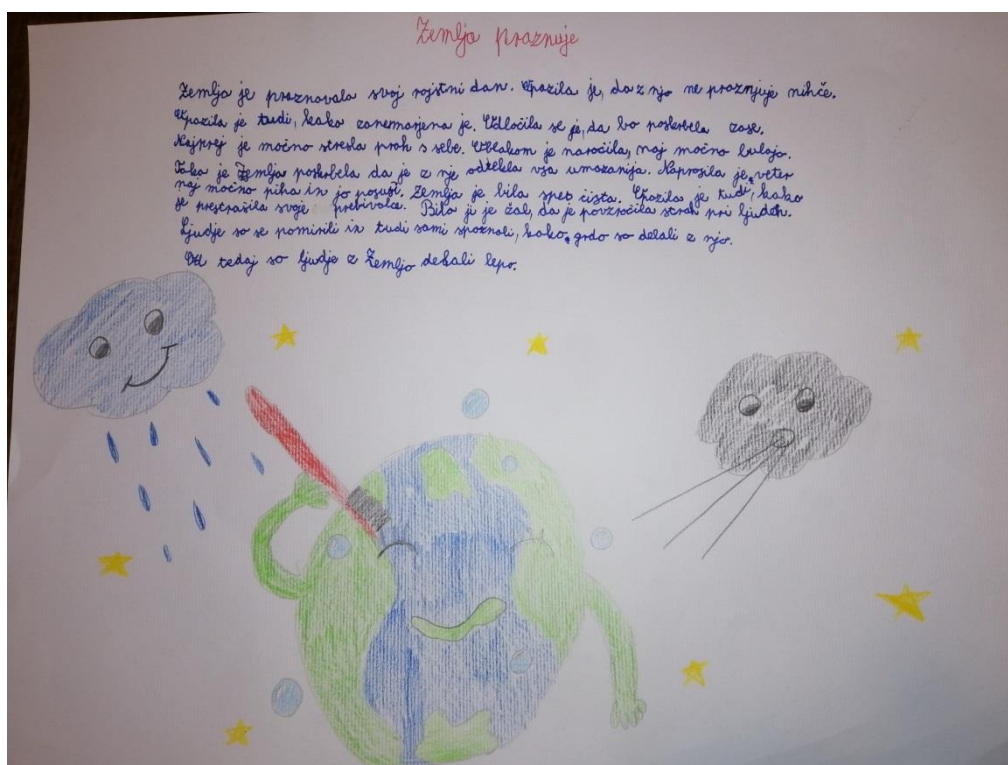 Zemlja praznuje
Zemlja je praznovala svoj rojstni dan. Opazila je, da z njo ne praznjuje nihče.
Opazila je tudi, kako zanemarjena je. Odločila se je, da bo poskrbela zase.
Najprej je močno stresla prah s sebe. Oblakom je naročila, naj močno lulajo.
Tako je Zemlja poskrbela da je z nje odtekla vsa umazanija. Naprosila je, veter
naj močno piha in jo posuši. Zemlja je bila spet čista. Opazila je tudi, kako
je prestrašila svoje prebivalce. Bilo ji je žal, da je povzročila strah pri ljudeh.
Ljudje so se pomirili in tudi sami spoznali, kako grdo so delali z njo.
Od tedaj so ljudje z Zemljo delali lepo.